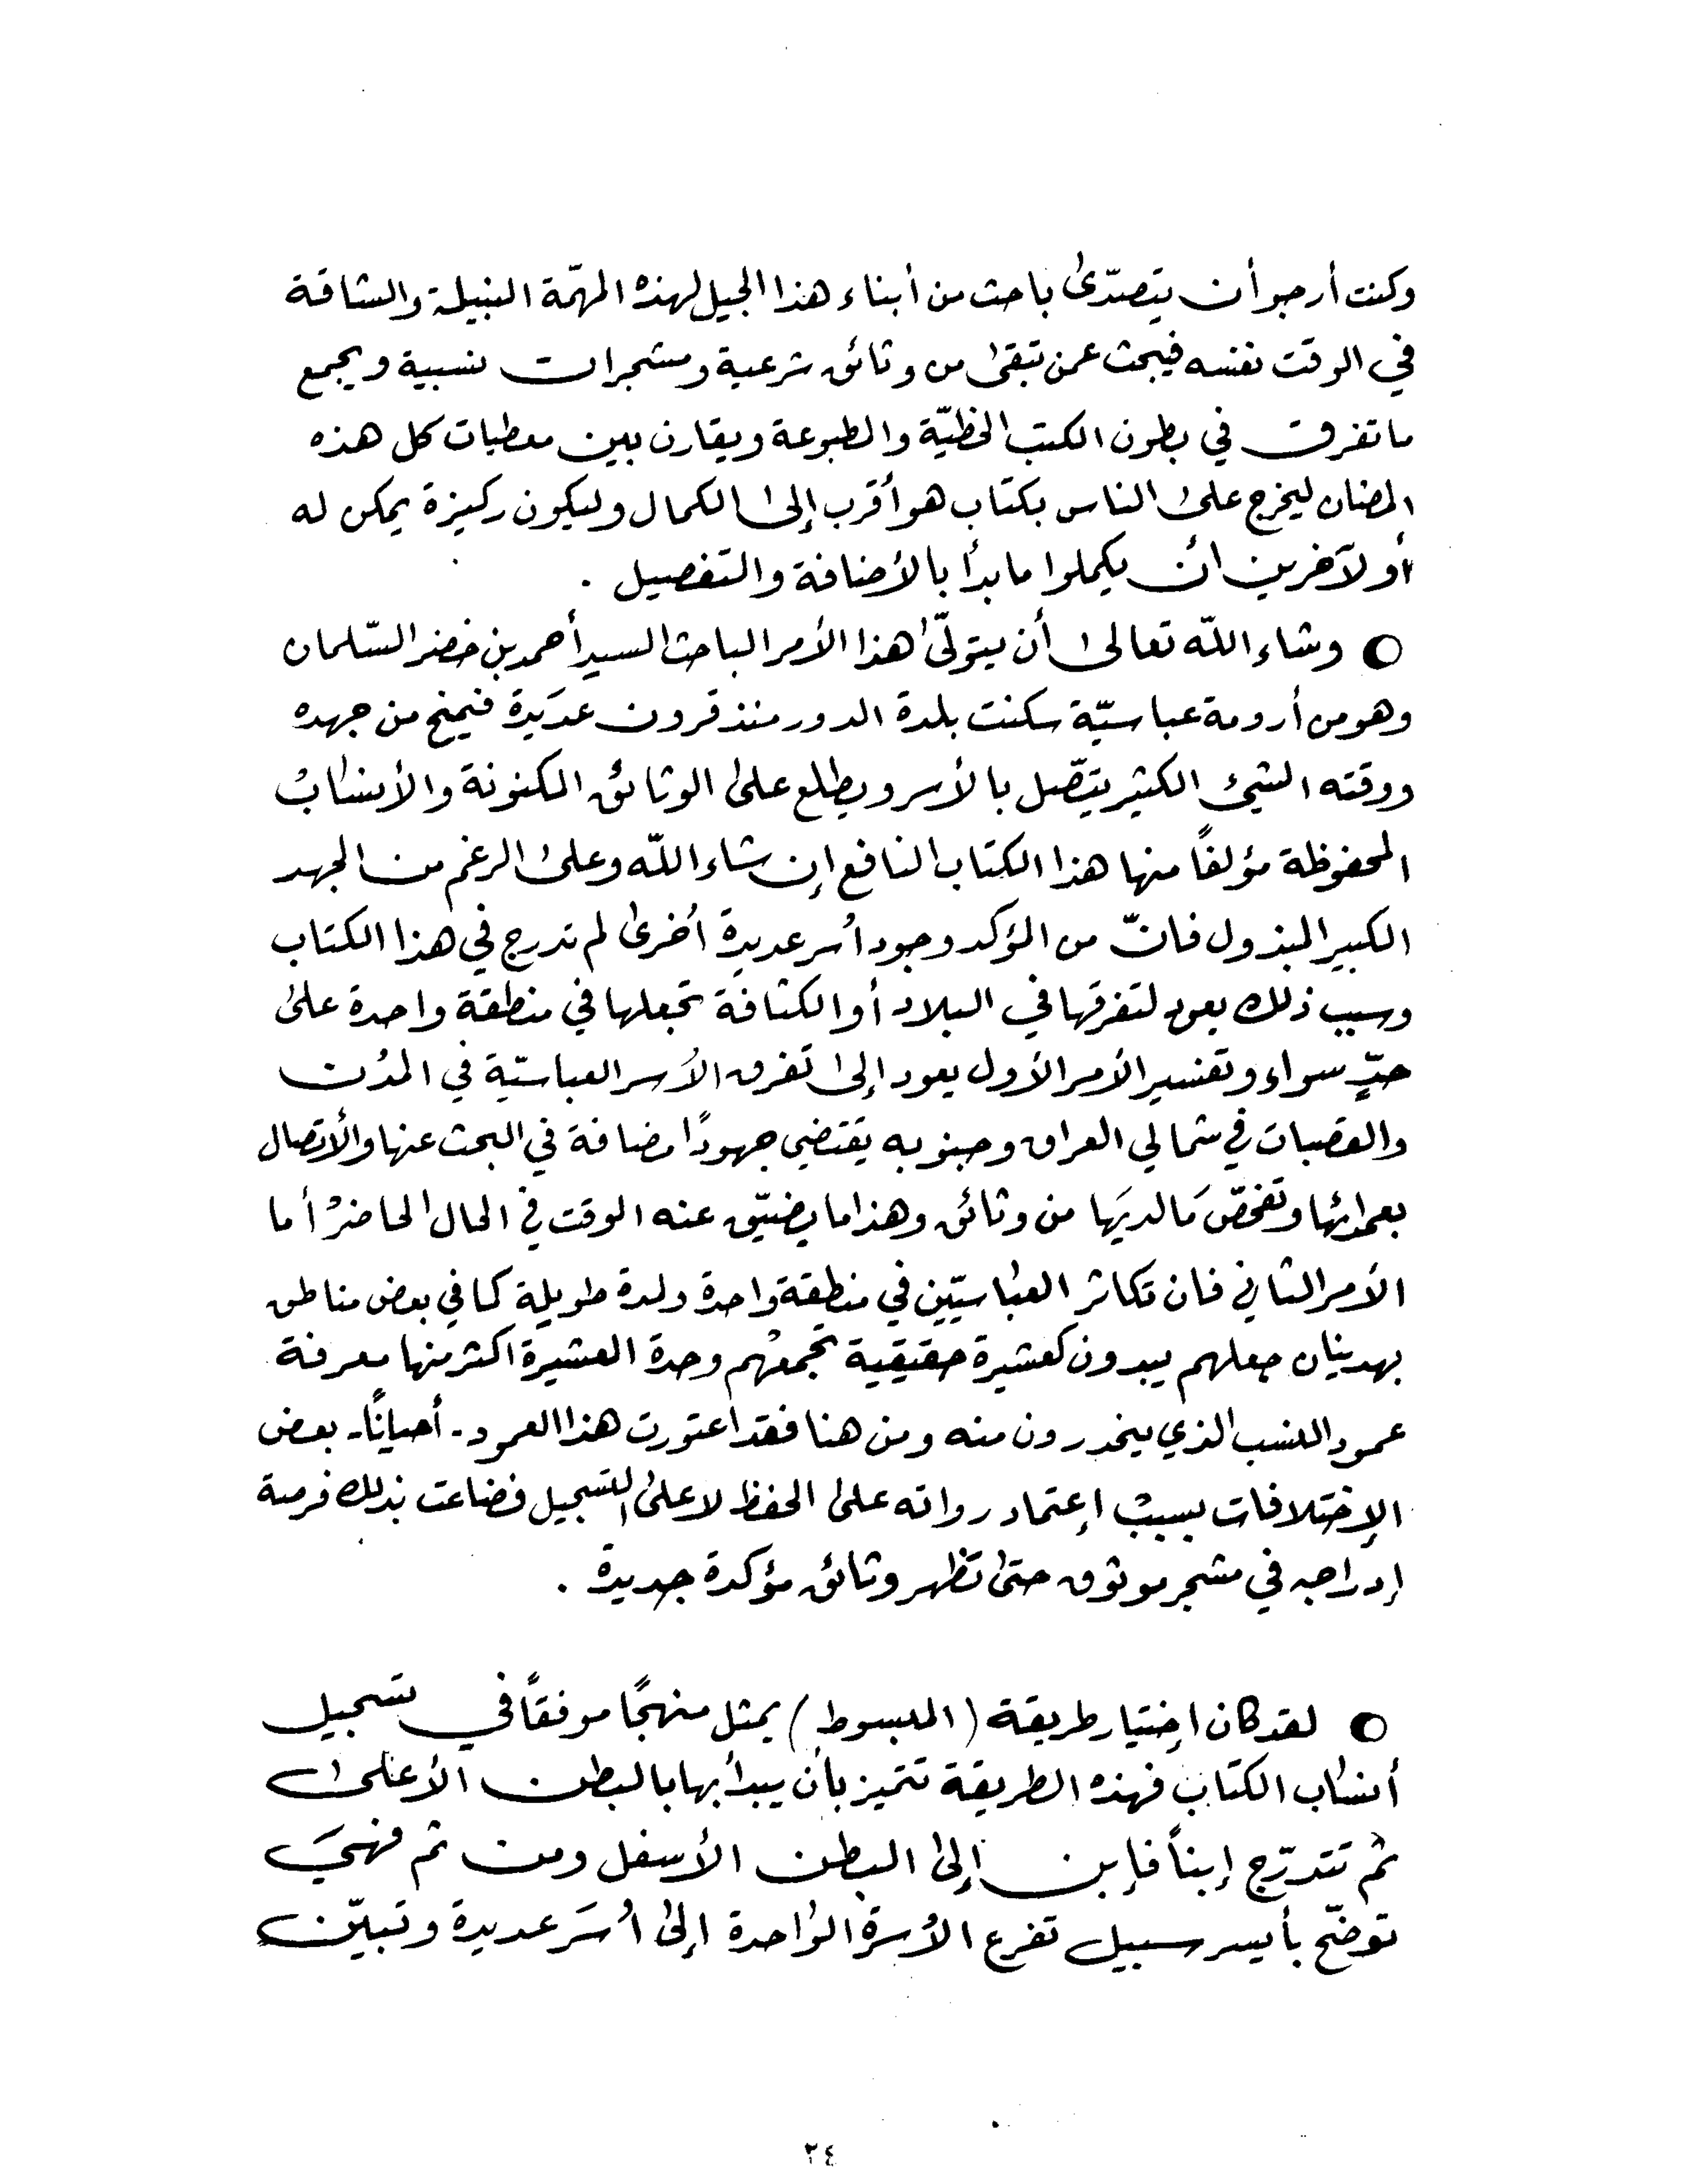 وكنت أرجو أن يتصدّى باحث من أبناء هذا الجيل لهذه المهمّة النبيلة والشاقة
في الوقت نفسه فيبحث عمن تبقى من وثائق شرعية ومشجرات نسبية ويجمع
ما تفرق في بطون الكتب الخطيّة والمطبوعة ويقارن بين معطيات كل هذه
المضان ليخرج على الناس بكتاب هو أقرب إلى الكمال وليكون ركيزة يمكن له
أو لآخرين أن يكملوا ما بدأ بالأضافة والتفصيل .
○ وشاء اللّه تعالى أن يتولّى هذا الأمر الباحث السيد أحمد بن خضر السّلمان
وهو من أرومة عباسيّة سكنت بلدة الدور منذ قرون عديدة فيمنح من جهده
ووقته الشيئ الكثير يتّصل بالأسر ويطلع على الوثائق المكنونة والأنساب
المحفوظة مؤلفاً منها هذا الكتاب النافع إن شاء اللّه وعلى الرغم من الجهد
الكبير المبذول فانّ من المؤكد وجود أسر عديدة أخرى لم تدرج في هذا الكتاب
وسبب ذلك يعود لتفرقها في البلاد أو الكثافة تجعلها في منطقة واحدة على
حدٍّ سواء وتفسير الأمر الأول يعود إلى تفرق الأسر العباسيّة في المدن
والقصبات في شمالي العراق وجنوبه يقتضي جهودًا مضافة في البحث عنها والأتصال
بعمدائها وتفحّص مَا لديَها من وثائق وهذا ما يضيّق عنه الوقت في الحال الحاضر أما
الأمر الثاني فان تكاثر العباسيّين في منطقة واحدة ولمدة طويلة كما في بعض مناطق
بهدينان جعلهم يبدون كعشيرة حقيقية تجمعهم وحدة العشيرة اكثر منها معرفة
عمود النسب الذي ينحدرون منه ومن هنا فقد اعتورت هذا العمود - أحيانًا - بعض
الإختلافات بسبب إعتماد رواته على الحفظ لا على التسجيل فضاعت بذلك فرصة
إدراجه في مشجر موثوق حتى تظهر وثائق مؤكدة جديدة .
○ لقد كان إختيار طريقة ( المبسوط ) يمثل منهجًا موفقاً في تسجيل
أنساب الكتاب فهذه الطريقة تتميز بأن يبدأ بها بالبطن الأعلى
ثم تتدرّج إبناً فإبن إلى البطن الأسفل ومن ثم فهيَ
توضّح بأيسر سبيل تفرع الأسرة الواحدة إلى أُسَر عديدة وتبيّن
٢٤